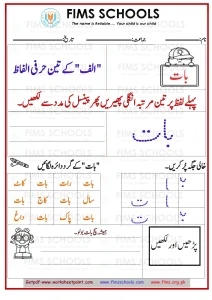 FIMS SCHOOLS
The name is Reliable ... Your child is our child
نام: جماعت: تاریخ:
"الف" کے تین حرفی الفاظ
بات
پہلے لفظ پر تین مرتبہ انگلی پھیریں پھر پینسل کی مدد سے لکھیں۔
بات
خالی جگہ پُر کریں۔
"بات" کے گرد دائرہ لگائیں۔
بات رات بات کات
سال بات کاج بات
بات پاک بات داغ
ہمیشہ سچ بات بولو۔
پڑھیں اور لکھیں
Getpdf-www.worksheetpoint.com www.fimsschools.com www.fims.org.pk